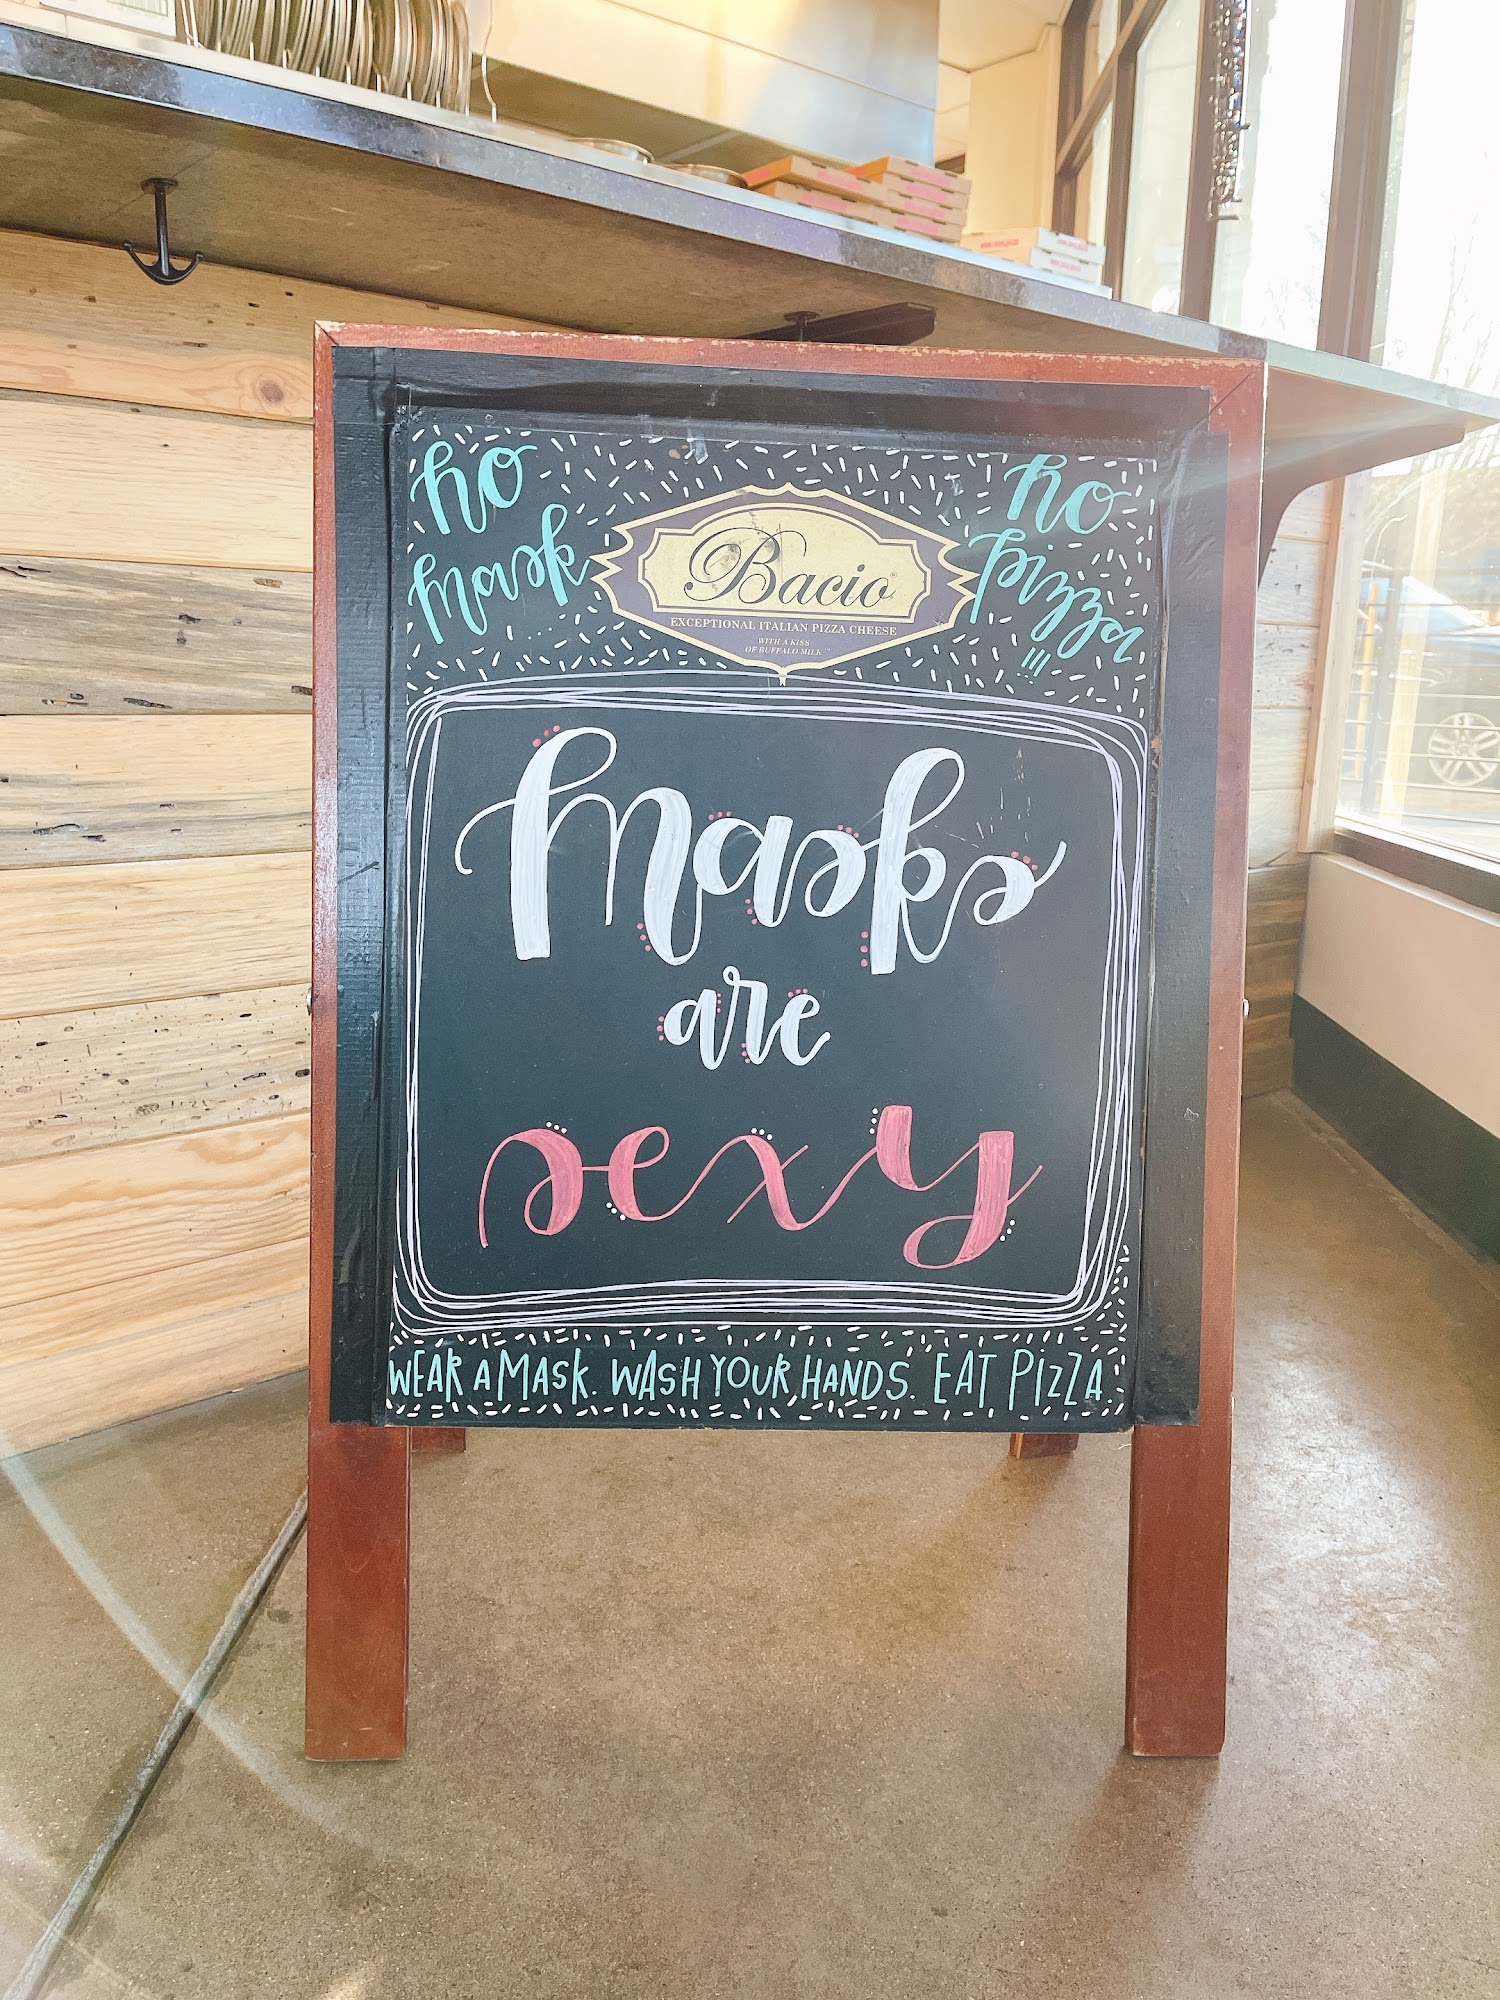 no
mask
...
Bacio
EXCEPTIONAL ITALIAN PIZZA CHEESE
WITH A KISS
OF BUFFALO MILK™
no
pizza
!!!
Masks
are
sexy
WEAR A MASK. WASH YOUR HANDS. EAT PIZZA.